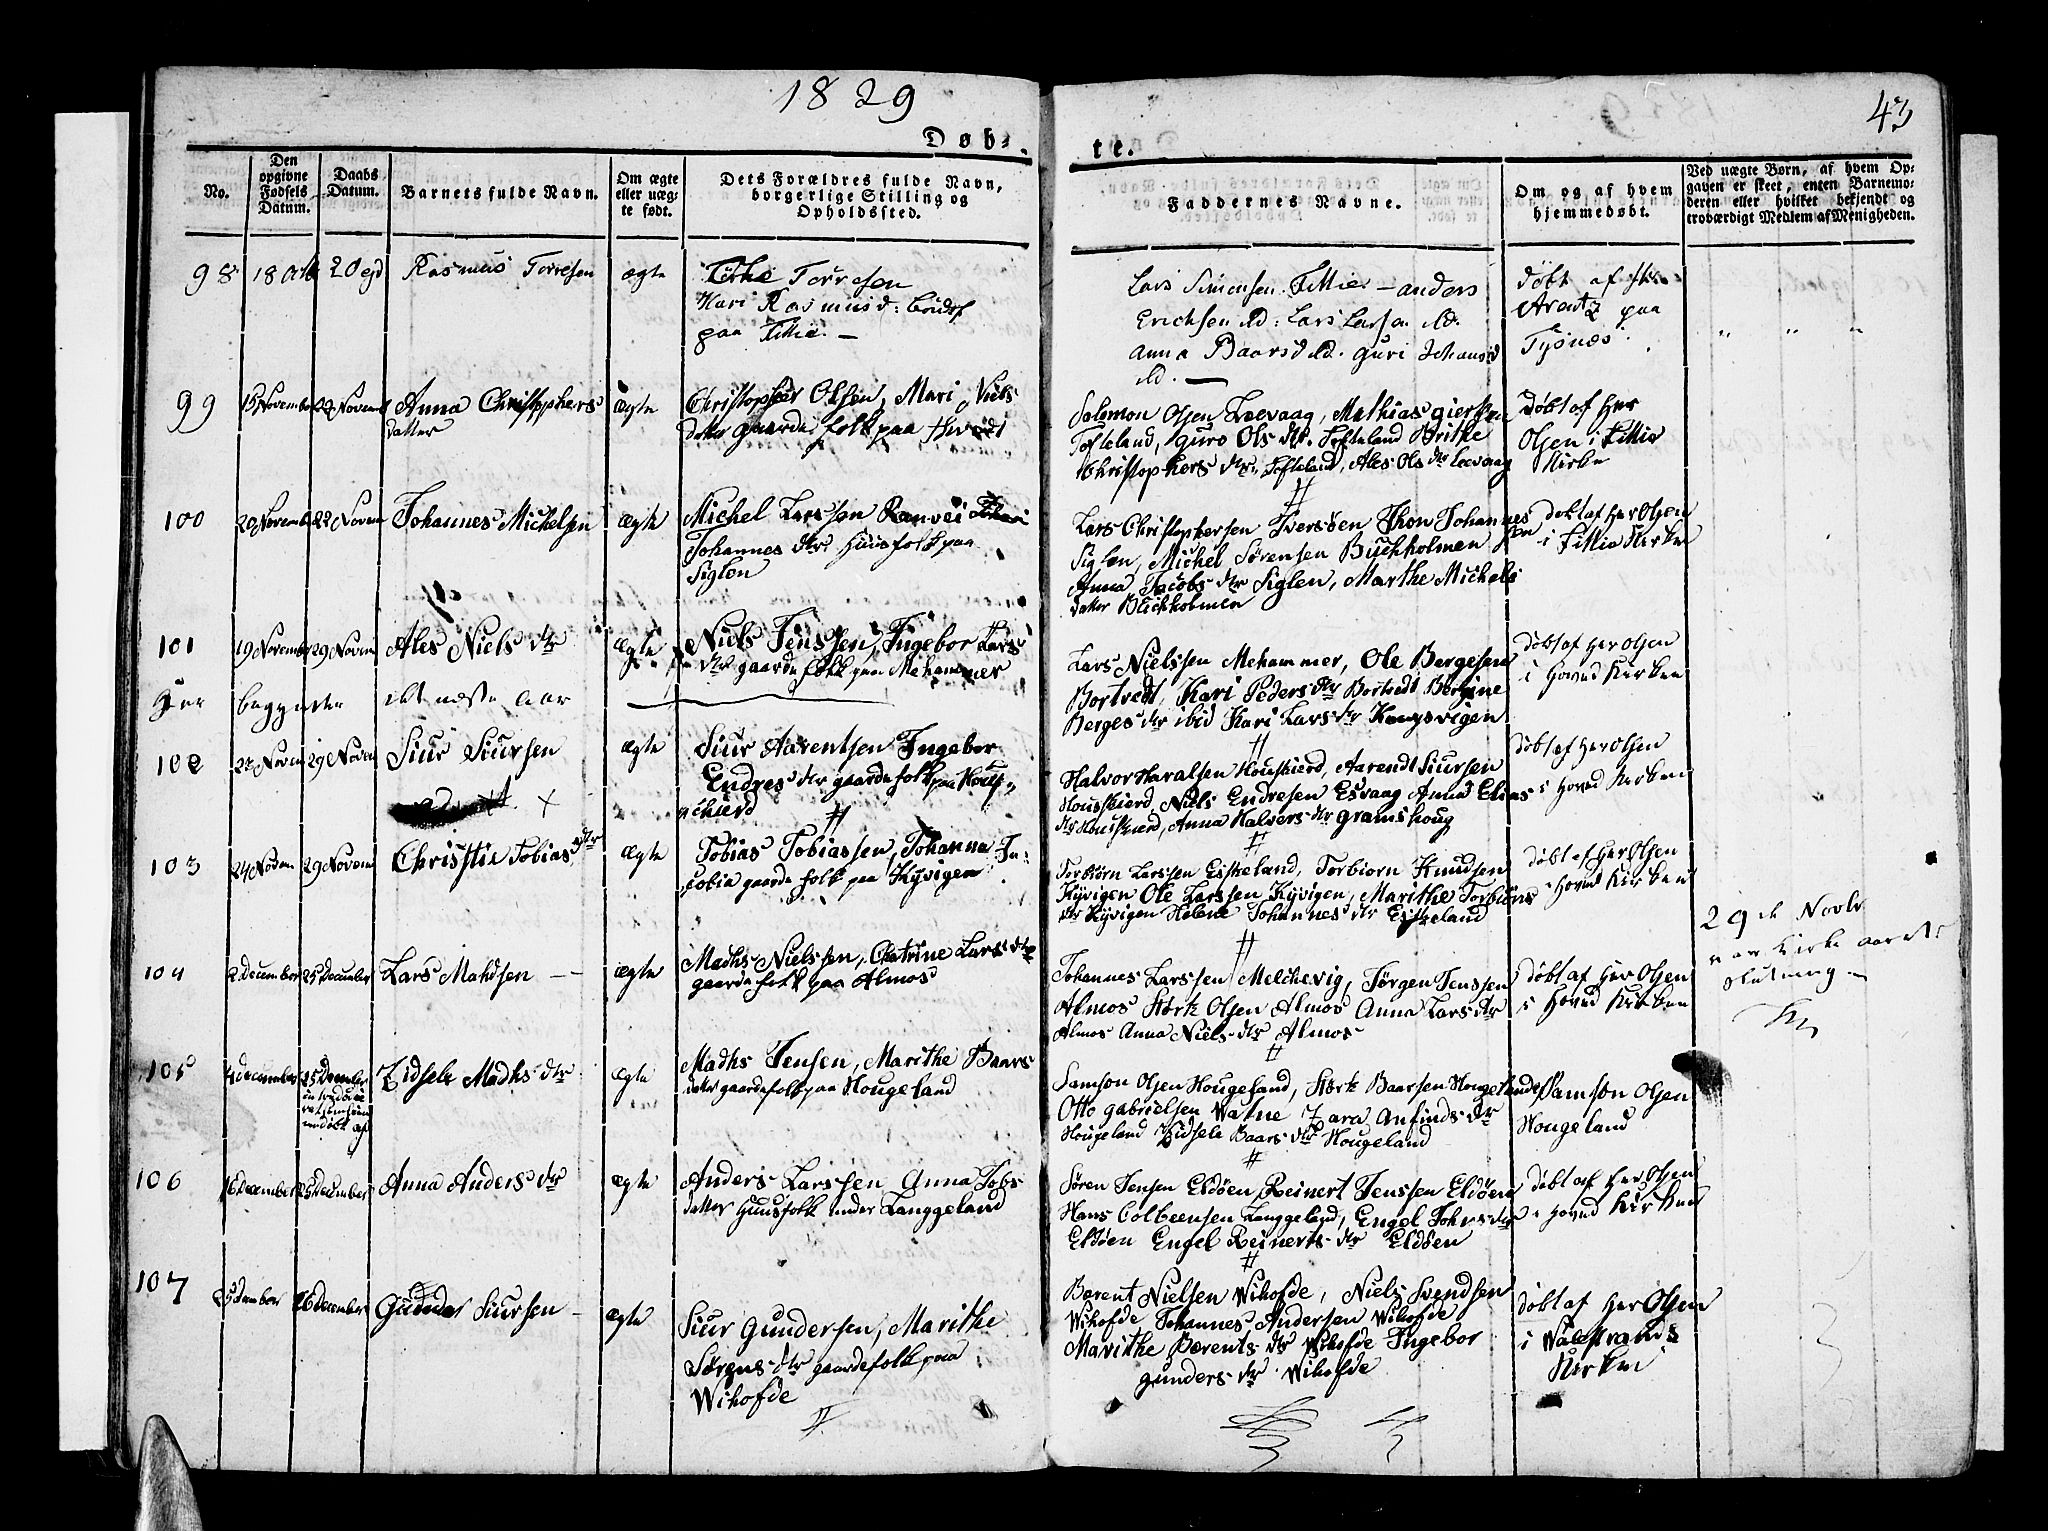 1829
43
Døb-
te.
No.
Den
opgivne
Fødsels
Datum.
Daabs
Datum.
Barnets fulde Navn.
Om ægte
eller uæg-
te født.
Dets Forældres fulde Navn,
borgerlige Stilling og
Opholdssted.
Faddernes Navne.
Om og af hvem
hjemmedøbt.
Ved uægte Børn, af hvem Op-
gaven er skeet, enten Barnemo-
deren eller hvilket bekjendt og
troværdigt Medlem af Menigheden.
98
18 Octb
20 ejd
Rasmus Torresen
ægte
Torresen
Kari Rasmusd:
paa Fittie. —
Lars Simensen Fittie — anders
Erichsen ibd: Lars Larsen ibd.
Anna Baarsd ibd. Guri Johansd
ibd. —
døbt af Hr
Arentz paa
Tysnes.
99
15 November
22 Novemb
Anna Christophers
datter
ægte
Christopher Olsen, Mari Niels
datter gaardefolk paa
Salomon Olsen Leevaag, Mathias giersen
Tofteland, guro Ols dtr. Tofteland Brithe
Christophers dtr, Tofteland, Ales Ols dtr Leevaag
døbt af Her
Olsen i Fittie
Kirke
100
20 Novemb
22 Novem
Johannes Michelsen
ægte
Michel Larssen Ranvei
Johannes dtr Huusfolk paa
Siglen
Lars Christophersen Iversøen Thon Johannes
sen
Siglen, Michel Sørensen Buchholmen
Anna Jacobs dtr Siglen, Marthe Michels
datter Buchholmen
døbt af Her Olsen
i Fittie Kirke
101
19 November
29 Novem
Ales Niels dtr
ægte
Niels Jenssen, Ingebor Lars
dtr gaardefolk paa Mehammer
Lars Nielssen Mehammer, Ole Bergesen
Bortvedt, Kari Peders dtr Bortvedt Bergine
Berges dtr ibid Kari Lars dtr Kongsvigen
døbt af Her Olsen
i Hoved Kirken
Her begynder det næste aar
102
22 Novem
29 Novem
Siur Siursen
ægte
Siur Aarentsen Ingebor
Endres dtr gaardefolk paa Hous-
schierd
Halvor Haralsen Houskierd, Aarendt Siursen
Houskierd, Niels Endresen Esvaag Anna Elias
dtr Houskierd, Anna Halvers dtr gramshoug
døbt af Her Olsen
i Hoved Kirken
103
24 Novem
29 Novem
Christie Tobias dtr
ægte
Tobias Tobiassen, Johanna Ja-
cobia gaardefolk paa Kyvigen
Torbiørn Larssen Eskeland, Torbiorn Knudsen
Kyvigen Ole Larssen Kyvigen, Marithe Torbiøns
dtr Kyvigen Helene Johannes dtr Eskeland
døbt af Her Olsen
i Hoved Kirken
29de Novbr
var Kirke aarets
slutning —
104
2 December
25 December
Lars Mahdsen — —
ægte
Madhs Nielssen, Chatrine Lars dtr
gaardefolk paa Almos
Johannes Larssen Melchevig, Jørgen Jenssen
Almos Størk Olsen Almos Anna Lars dtr
Almos Anna Niels dtr Almos
døbt af Her Olsen
i Hoved Kirken
105
December
25 December
Zidsele Madhs dtr
ægte
Madhs Jensen, Marithe Baars
dater gaardefolk paa Hougeland
Samson Olsen Hougeland, Størk Baarsen Hougeland
Otto gabrielsen Watne Zara Anfinds dtr
Hougeland Zidsele Baars dtr Hougeland
Samson Olsen
Hougeland
106
16 December
25 December
Anna Anders dtr
ægte
Anders Larssen Anna Jobs
datter Huusfolk under Langgeland
Søren Jensen Eldøen Reinert Jenssen Eldøen
Hans Colbeensen Langgeland, Engel Johns dtr
Eldøen Engel Reinerts dtr Eldøen
døbt af Her Olsen
i Hoved Kirken
107
26 December
Siursen —
ægte
Siur Gundersen, Marithe
Sørens dtr gaardefolk paa
Wikofde
Barent Nielsen Wikofde, Niels Svendsen
Wikofde Johannes Andersen Wikofde
Marithe Barents dtr Wikofde Ingebor
gunders dtr Wikofde
døbt af Her Olsen
i Walestrands
Kirken